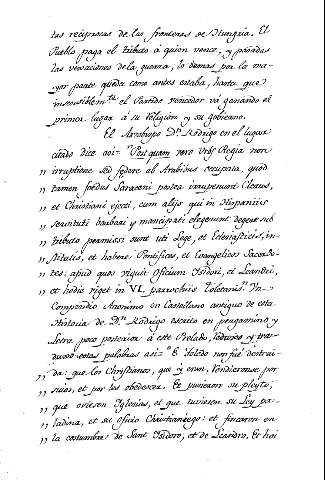 tas recíprocas de las fronteras de Hungria. El
Pueblo paga el tributo á quien vence, y pasadas
las vexaciones de la guerra, lo demas por la ma-
yor parte queda como antes estaba, hasta que
insensiblem.te el Partido vencedor vá ganando el
primer lugar á su religion y su gobierno.
El Arzobispo D.n Rodrigo en el lugar
citado dice asi = Postquam vero Urbs Regia non
,, irruptione sed federe ab Arabibus occupata, quod
,, tamen foedus Saraceni postea irruperunt Clerus,
,, et Christiani ejecti, cum alijs qui in Hispaniis
,, servituti barbari y mancipati elegerunt degere sub
,, tributo permissi sunt uti Lege, et Eclesiasticis, in-
,, stitutis, et habere Pontifices, et Evangelicos Sacerdo-
,, tes: apud quos viguit Oficium Isidori, et Leandri,
,, et hodie viget in VI. parrochiis Toletanis. Un
Compendio Anonimo en Castellano antiguo de esta
Historia de D.n Rodrigo escrito en pergamino y
Letra poco posterior á este Prelado, reduxo y tra-
duxo estas palabras asi = E Toledo non fué destrui-
,, da: que los Christianos, que y eran, rendieronse por
,, suios, et por los obedescer. Et pusieron su pleyto,
,, que oviesen Iglesias, et que tuviesen su Ley pa-
,, ladina, et su oficio Christianiego: et fincaron en
,, la costumbre de Sant Isidoro, et de Leandro, Et hoi